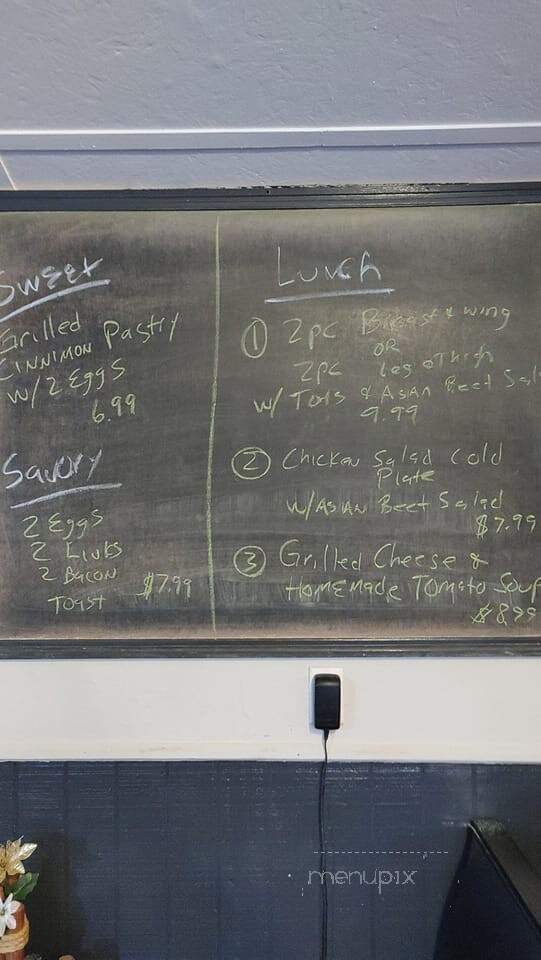 Sweet
Grilled Pastry
CINNIMON
W/2 Eggs
6.99
Savory
2 Eggs
2 Links
2 Bacon
Toast $7.99
Lunch
① 2pc Breast & wing
OR
2pc Leg & Thigh
W/ Tots & Asian Beet Sal
9.99
② Chicken Salad Cold
Plate
W/ASIAN Beet Salad
$7.99
③ Grilled Cheese &
HOMEMADE TOMATO Soup
$8.99
menupix